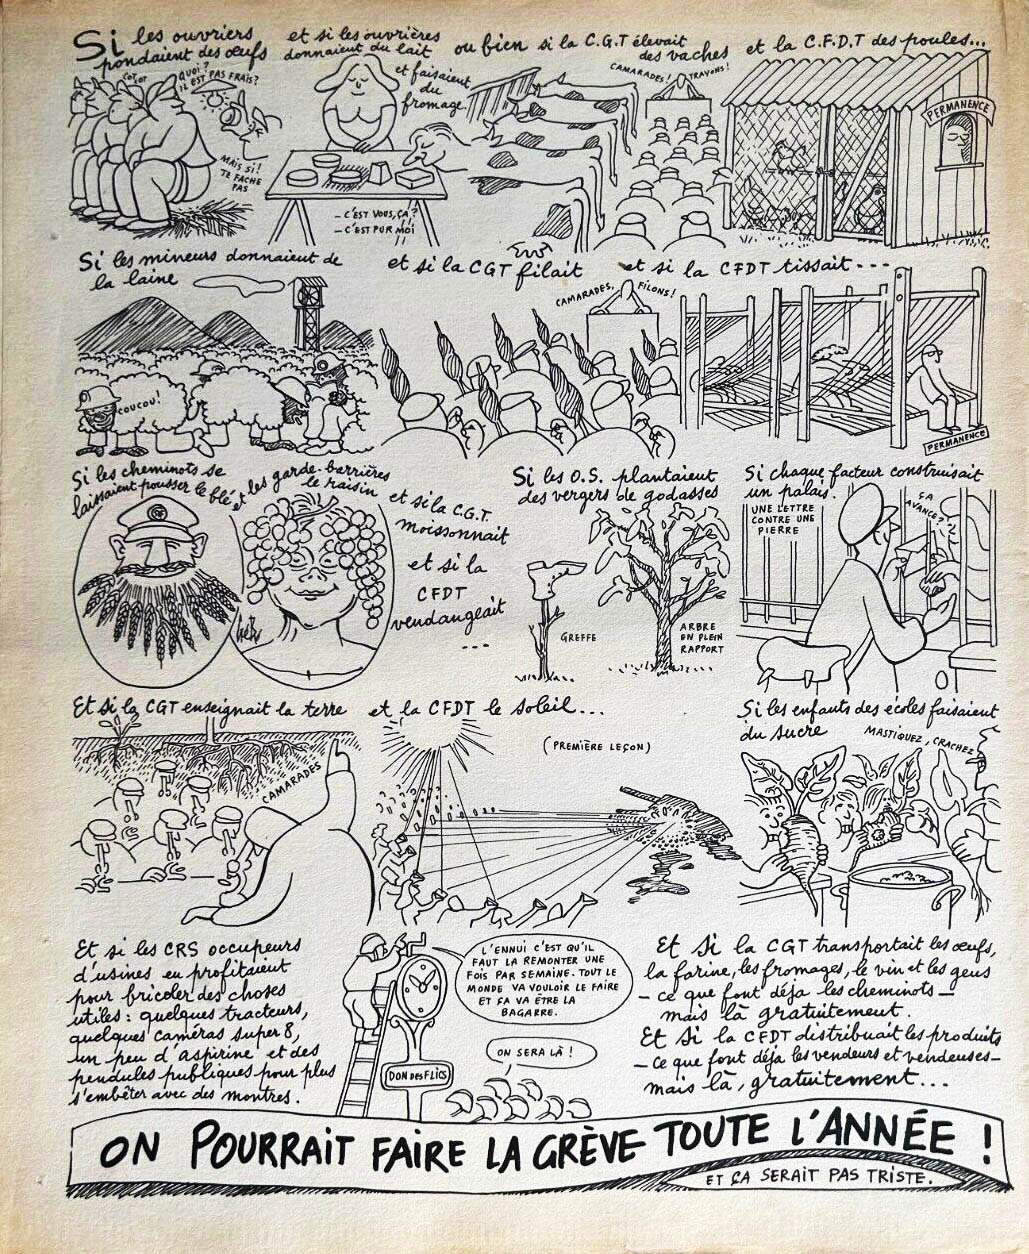 Si les ouvriers
pondaient des œufs
et si les ouvrières
donnaient du lait
et faisaient
du
fromage
ou bien si la C.G.T élevait
des vaches
et la C.F.D.T des poules...
COT COT
QUOI ?
IL EST PAS FRAIS?
MAIS SI!
TE FACHE
PAS
– C'EST VOUS, ÇA ?
– C'EST PUR MOI
!!
CAMARADES! TRAYONS!
PERMANENCE
Si les mineurs donnaient de
la laine
et si la CGT filait
et si la CFDT tissait ---
COUCOU!
CAMARADES, FILONS!
PERMANENCE
Si les cheminots se
laissaient pousser le blé
et les garde-barrières
le raisin
et si la C.G.T.
moissonnait
et si la
CFDT
vendangeait
...
Si les O.S. plantaient
des vergers de godasses
GREFFE
ARBRE
EN PLEIN
RAPPORT
Si chaque facteur construisait
un palais.
UNE LETTRE
CONTRE UNE
PIERRE
ÇA
AVANCE?
Et si la CGT enseignait la terre
et la CFDT le soleil...
CAMARADES
(PREMIÈRE LEÇON)
Si les enfants des écoles faisaient
du sucre
MASTIQUEZ, CRACHEZ
Et si les CRS occupeurs
d'usines en profitaient
pour bricoler des choses
utiles : quelques tracteurs,
quelques caméras super 8,
un peu d'aspirine et des
pendules publiques pour plus
s'embêter avec des montres.
L'ENNUI C'EST QU'IL
FAUT LA REMONTER UNE
FOIS PAR SEMAINE. TOUT LE
MONDE VA VOULOIR LE FAIRE
ET ÇA VA ÊTRE LA
BAGARRE.
ON SERA LÀ !
DON DES FLICS
Et si la CGT transportait les œufs,
la farine, les fromages, le vin et les gens
– ce que font déja les cheminots –
mais là gratuitement.
Et si la CFDT distribuait les produits
– ce que font déja les vendeurs et vendeuses –
mais là, gratuitement...
ON POURRAIT FAIRE LA GRÈVE TOUTE L'ANNÉE !
ET ÇA SERAIT PAS TRISTE.